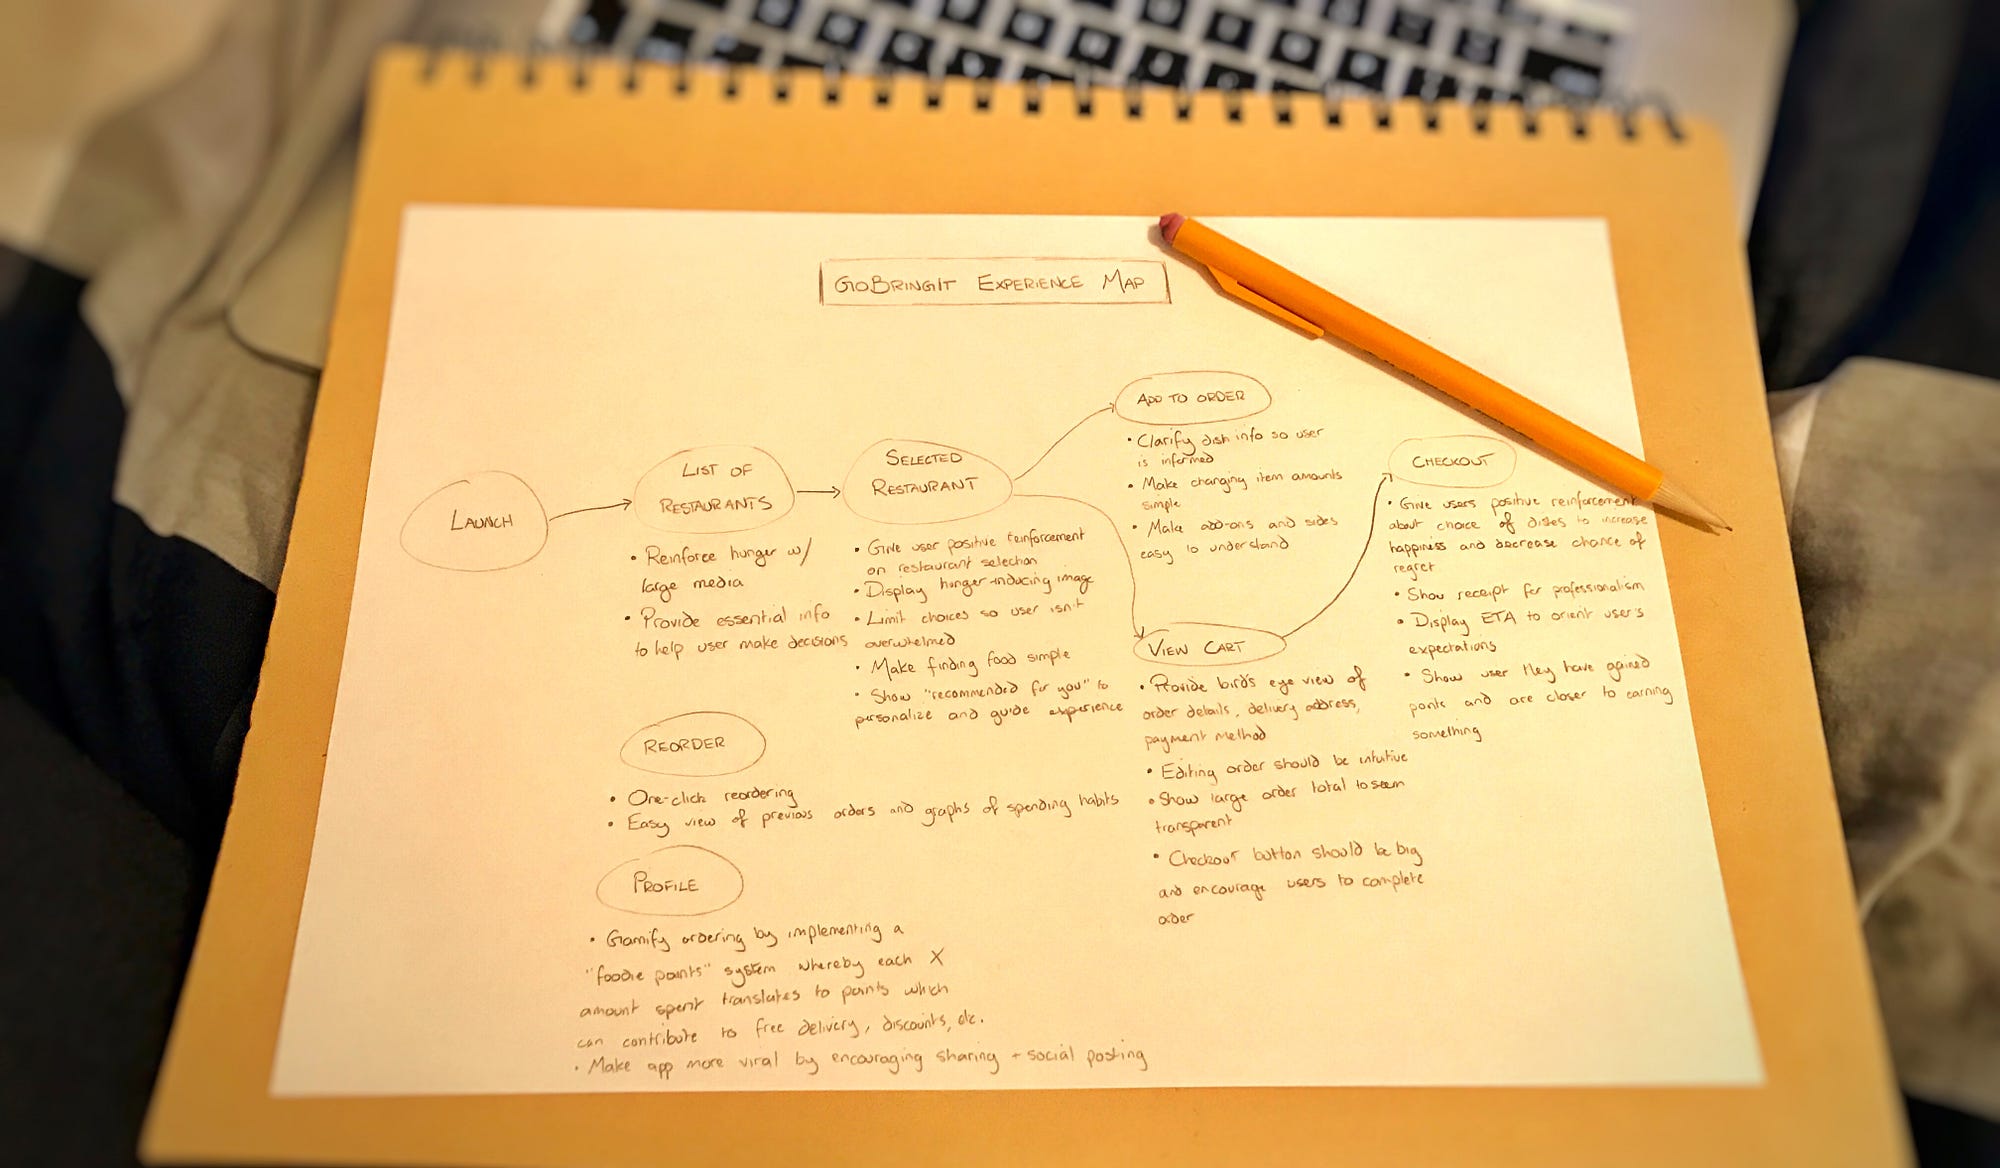 GoBringIt Experience Map
Launch
List of
Restaurants
• Reinforce hunger w/
large media
• Provide essential info
to help user make decisions
Selected
Restaurant
• Give user positive reinforcement
on restaurant selection
• Display hunger-inducing image
• Limit choices so user isn't
overwhelmed
• Make finding food simple
• Show "recommended for you" to
personalize and guide experience
Add to order
• Clarify dish info so user
is informed
• Make changing item amounts
simple
• Make add-ons and sides
easy to understand
View Cart
• Provide bird's eye view of
order details, delivery address,
payment method
• Editing order should be intuitive
• Show large order total to seem
transparent
• Checkout button should be big
and encourage users to complete
order
Checkout
• Give users positive reinforcement
about choice of dishes to increase
happiness and decrease chance of
regret
• Show receipt for professionalism
• Display ETA to orient user's
expectations
• Show user they have gained
points and are closer to earning
something
Reorder
• One-click reordering
• Easy view of previous orders and graphs of spending habits
Profile
• Gamify ordering by implementing a
"foodie points" system whereby each X
amount spent translates to points which
can contribute to free delivery, discounts, etc.
• Make app more viral by encouraging sharing + social posting